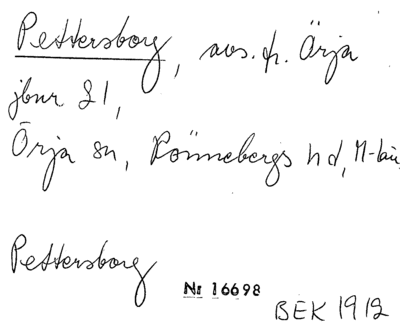 Pettersborg, avs. fr. Örja
jbnr 21,
Örja sn, Rönnebergs hd, M-län
Pettersborg
Nr 16698
BEK 1912